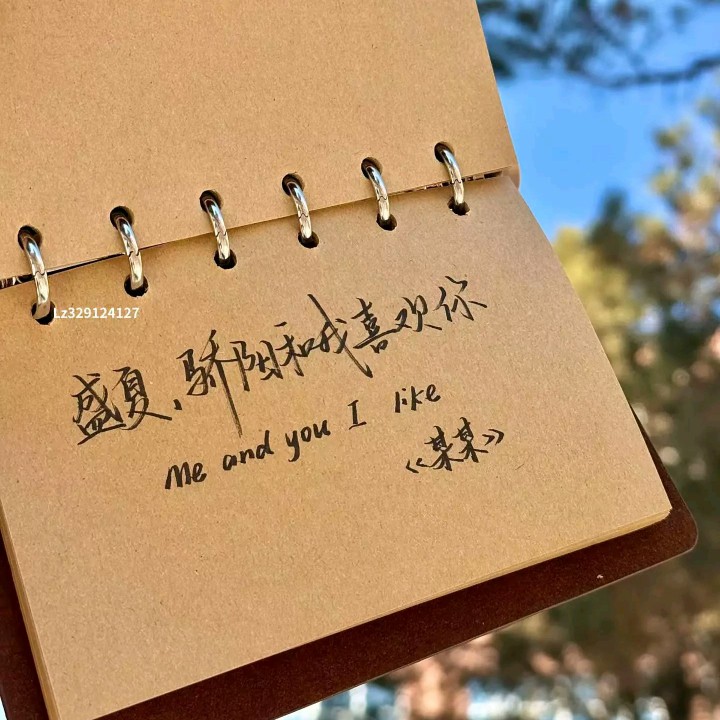 Lz329124127
盛夏,骄阳和我喜欢你
Me and you I like
《某某》